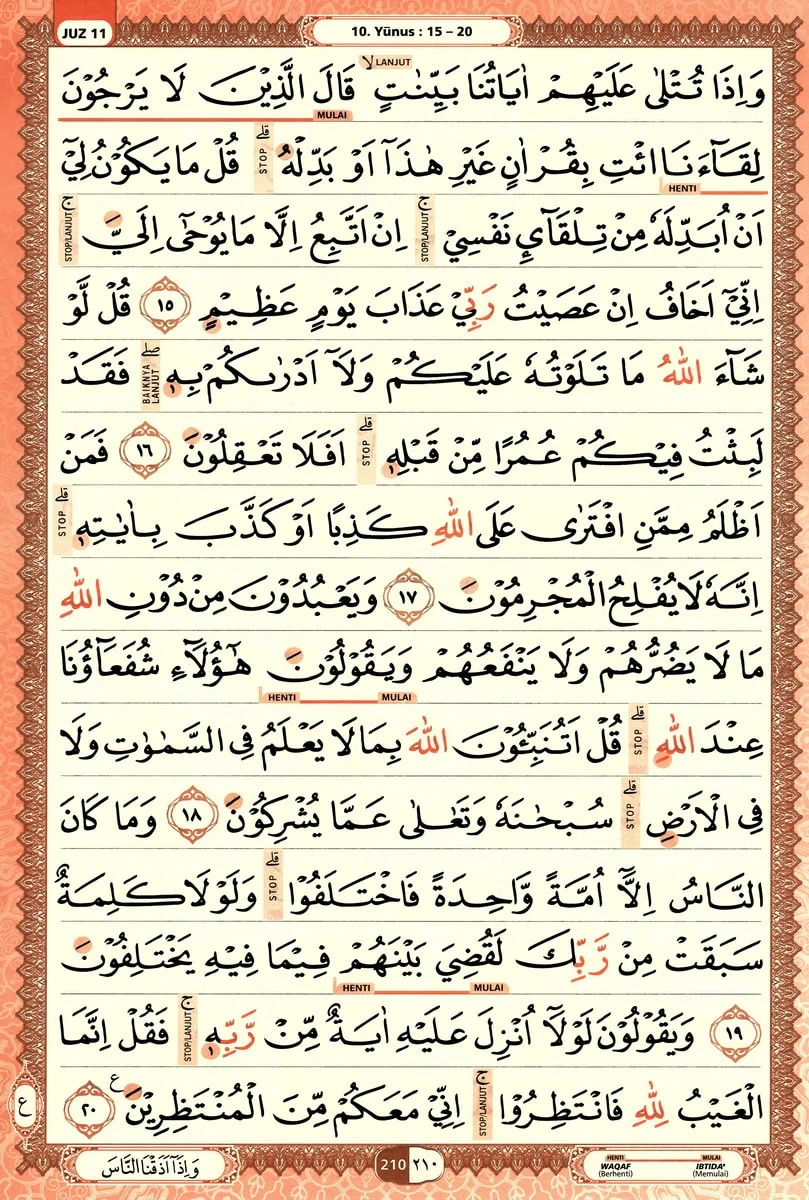 JUZ 11
10. Yūnus : 15 – 20
وَاِذَا تُتْلٰى عَلَيْهِمْ اٰيَاتُنَا بَيِّنٰتٍ ۙ قَالَ الَّذِيْنَ لَا يَرْجُوْنَ
LANJUT
MULAI
لِقَاۤءَنَا ائْتِ بِقُرْاٰنٍ غَيْرِ هٰذَآ اَوْ بَدِّلْهُ ۗ قُلْ مَا يَكُوْنُ لِيْٓ
STOP
HENTI
اَنْ اُبَدِّلَهٗ مِنْ تِلْقَاۤئِ نَفْسِيْ ۚ اِنْ اَتَّبِعُ اِلَّا مَا يُوْحٰٓى اِلَيَّ ۚ
STOP/LANJUT
STOP/LANJUT
اِنِّيْٓ اَخَافُ اِنْ عَصَيْتُ رَبِّيْ عَذَابَ يَوْمٍ عَظِيْمٍ ١٥ قُلْ لَّوْ
شَاۤءَ اللّٰهُ مَا تَلَوْتُهٗ عَلَيْكُمْ وَلَآ اَدْرٰىكُمْ بِهٖ ۖ فَقَدْ
BAIKNYA LANJUT
لَبِثْتُ فِيْكُمْ عُمُرًا مِّنْ قَبْلِهٖ ۗ اَفَلَا تَعْقِلُوْنَ ١٦ فَمَنْ
STOP
اَظْلَمُ مِمَّنِ افْتَرٰى عَلَى اللّٰهِ كَذِبًا اَوْ كَذَّبَ بِاٰيٰتِهٖ ۗ
STOP
اِنَّهٗ لَا يُفْلِحُ الْمُجْرِمُوْنَ ١٧ وَيَعْبُدُوْنَ مِنْ دُوْنِ اللّٰهِ
مَا لَا يَضُرُّهُمْ وَلَا يَنْفَعُهُمْ وَيَقُوْلُوْنَ هٰٓؤُلَاۤءِ شُفَعَاۤؤُنَا
HENTI
MULAI
عِنْدَ اللّٰهِ ۗ قُلْ اَتُنَبِّـُٔوْنَ اللّٰهَ بِمَا لَا يَعْلَمُ فِى السَّمٰوٰتِ وَلَا
STOP
فِى الْاَرْضِ ۗ سُبْحٰنَهٗ وَتَعٰلٰى عَمَّا يُشْرِكُوْنَ ١٨ وَمَا كَانَ
STOP
النَّاسُ اِلَّآ اُمَّةً وَّاحِدَةً فَاخْتَلَفُوْا ۗ وَلَوْلَا كَلِمَةٌ
STOP
سَبَقَتْ مِنْ رَّبِّكَ لَقُضِيَ بَيْنَهُمْ فِيْمَا فِيْهِ يَخْتَلِفُوْنَ
HENTI
MULAI
١٩ وَيَقُوْلُوْنَ لَوْلَآ اُنْزِلَ عَلَيْهِ اٰيَةٌ مِّنْ رَّبِّهٖ ۚ فَقُلْ اِنَّمَا
STOP/LANJUT
الْغَيْبُ لِلّٰهِ فَانْتَظِرُوْا ۚ اِنِّيْ مَعَكُمْ مِّنَ الْمُنْتَظِرِيْنَ ࣖ ٢٠
STOP/LANJUT
ع
وَاِذَآ اَذَقْنَا النَّاسَ
210 ٢١٠
HENTI MULAI
WAQAF IBTIDA’
(Berhenti) (Memulai)